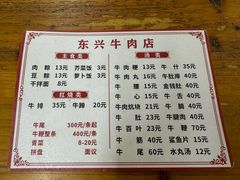 东兴牛肉店
主食类
肉粽 13元 芥菜饭 3元
豆粽 13元 萝卜饭 3元
干拌面 8元
红烧类
牛排 35元 牛蹄 20元
牛尾 300元/条起
牛鞭整条 400元/条
青菜 8-20元
拼盘 面议
汤类
牛肉粳 13元 牛什 35元
牛肉丸 16元 牛肚库 40元
牛腰 15元 金钱肚 40元
牛肉炕块 21元 牛舌 35元
牛肚 22元 牛腱肉 40元
牛百叶 22元 牛鞭 70元
牛筋 40元 鲨鱼片 15元
牛尾 60元 水丸汤 12元